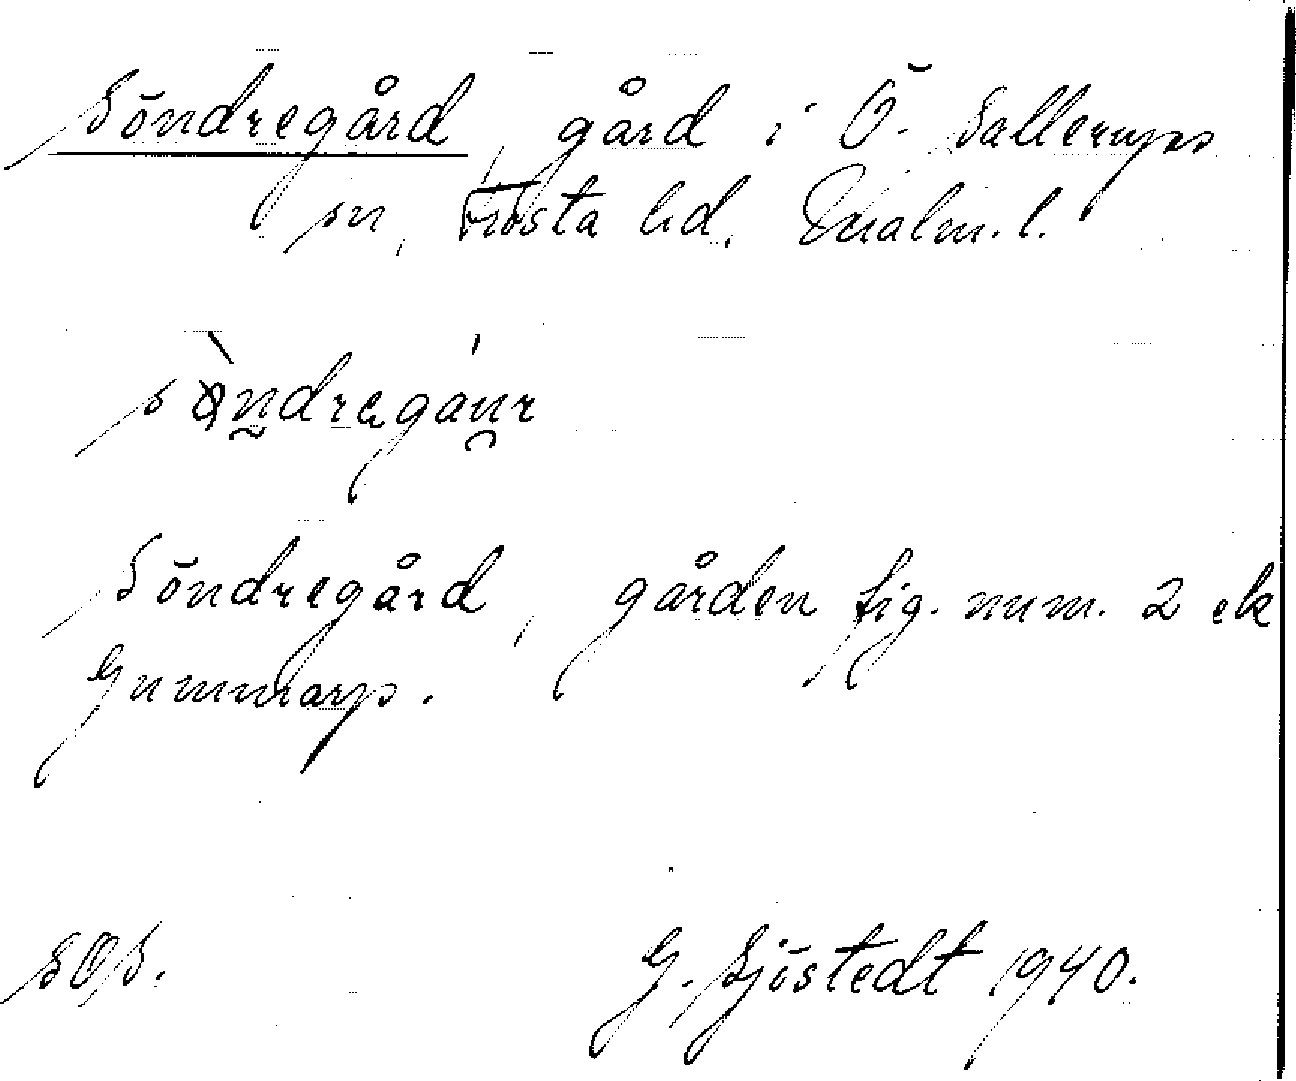 Söndregård, gård i Ö. Sallerups
sn, Frosta hd, Malm. l.
Söndregård, gården fig. num. 2 ek
Gummarp.
SOS.
G. Sjöstedt 1940.